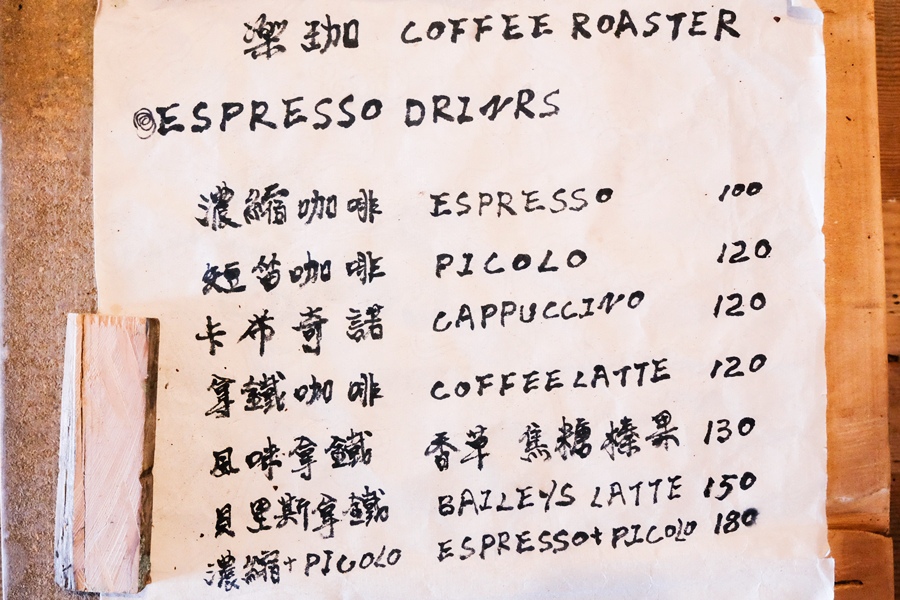 楽珈 COFFEE ROASTER
ESPRESSO DRINKS
濃縮咖啡 ESPRESSO 100
短笛咖啡 PICOLO 120
卡布奇諾 CAPPUCCINO 120
拿鐵咖啡 COFFEE LATTE 120
風味拿鐵 香草 焦糖 榛果 130
貝里斯拿鐵 BAILEYS LATTE 150
濃縮+PICOLO ESPRESSO+PICOLO 180